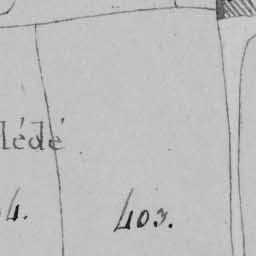 lédé
4. 403.